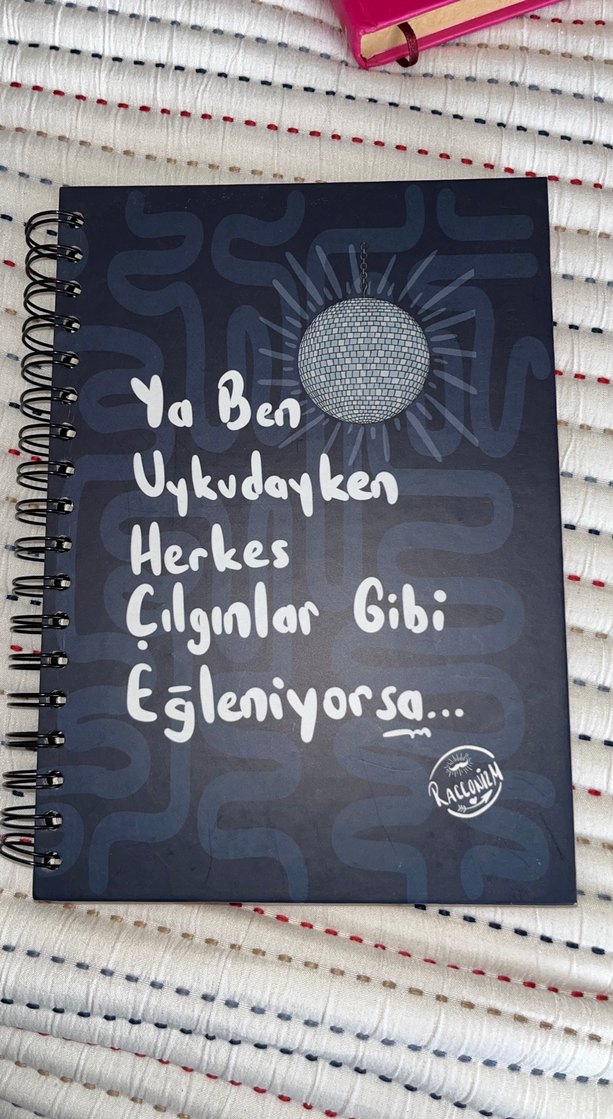 Ya Ben
Uykudayken
Herkes
Çılgınlar Gibi
Eğleniyorsa...
RACCONIZM